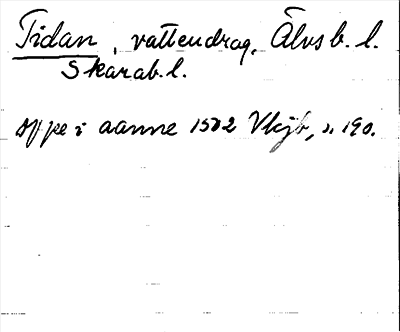 Tidan, vattendrag, Älvsb. l.
Skarab. l.
oppe i aanne 1502 Vkjb, s. 190.